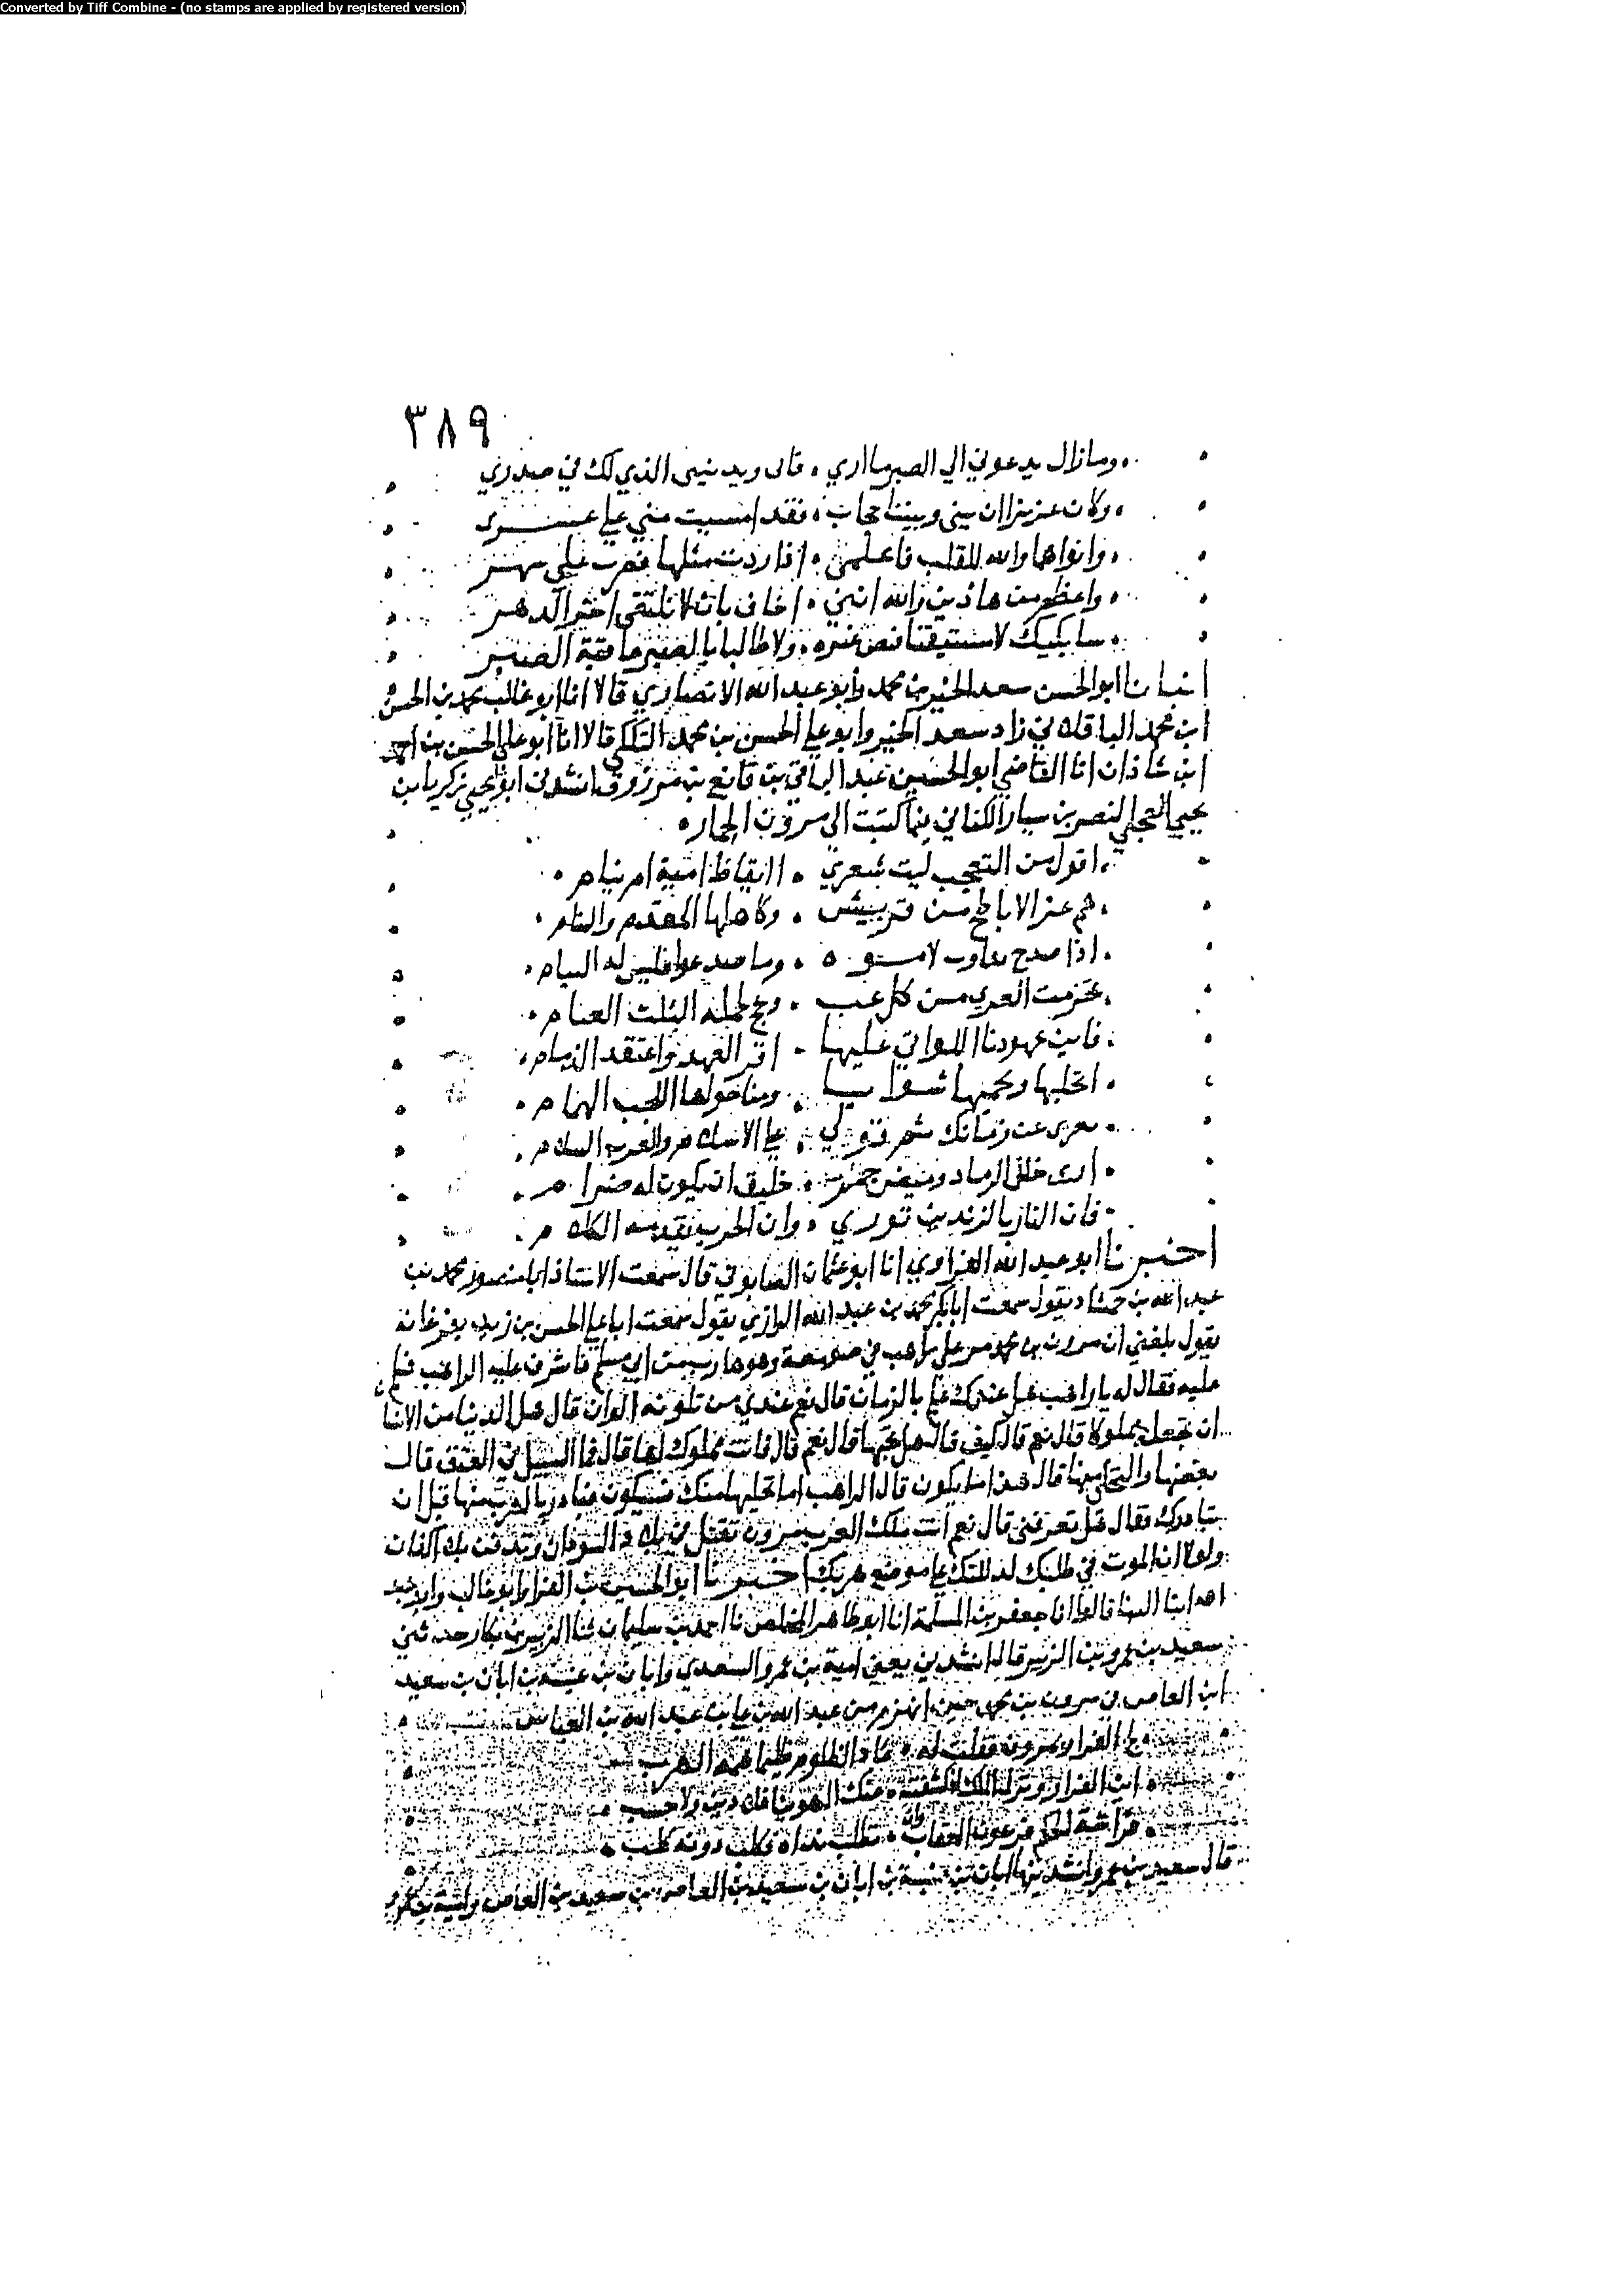 Converted by Tiff Combine - (no stamps are applied by registered version)
٣٨٩
وما زال يدعوني الي الصبر ما اري . فابى ويدنيني الذي لك في صدري
وكان عزيزا ان بيني وبيننا حجاب . فقد امسيت مني علي عشر
وانواها والله للقلب فاعلمي . اذا زدت مثلها فصرت علي شهر
واعظم من هاذين والله انني . اخاف بان لا نلتقي اخر الدهر
سابكيك لا مستبقيا فيض عبره . ولا طالبا بالصبر عاقبة الصبر
انبانا ابو الحسن سعد الخير بن محمد وابو عبد الله الانصاري قالا انا ابو غالب محمد بن الحسن
ابن محمد الباقلاني زاد سعد الخير وابو علي الحسن بن محمد التككي قالا انا ابو علي الحسن بن احمد
ابن شاذان انا القاضي ابو الحسين عبد الباقي بن قانع بن مرزوق انشدني ابو يحيي زكريا بن
يحيي لنصر بن سيار الكناني فيما كتبت الى مروان الحمار
اقول من التعجب ليت شعري . ا ايقاظ امية ام نيام
هم عز الاباطح من قريش . وكاهلها المقدم والسنام
اذا
فاين عهودنا اللواتي عليها . اقر العهد واعتقد الذمام
ومنا حولها اللجب الهمام
عن زمانك ثم قولي . علي الاسلام والعرب السلام
ارى خلل الرماد وميض جمر . خليق ان يكون له ضرام
فان النار بالزندين توري . وان الحرب يقدمه الكلام
اخبرنا ابو عبد الله الفراوي انا ابو عثمان الصابوني قال سمعت الاستاذ ابا منصور محمد بن
عبد الله بن حمشاد يقول سمعت ابا بكر محمد بن عبد الله الرازي يقول سمعت ابا علي الحسن بن زيد بفرغانة
يقول بلغني ان مروان بن محمد مر علي راهب في صومعة وهو هارب من ابي مسلم فاشرف عليه الراهب فسلم
عليه فقال له يا راهب هل عندك علم بالزمان قال نعم عندي من تلونه الوان قال هل الدنيا من الانسان
ان تجعل مملوكا قال نعم قال كيف قال هل تحبها قال نعم قال فانت مملوك لها قال فما السبيل في العتق قال
بغضها والتخلي منها قال هذا ما لا يكون قال الراهب اما تخليها منك فسيكون فبادر بالهرب منها قبل ان
تبادرك فقال هل تعرفني قال نعم انت ملك العرب مروان تقتل في بلاد السودان وتدفن بلا اكفان
ولولا ان الموت في طلبك لدللتك علي موضع هربك اخبرنا ابو الحسين بن الفرا وابو غالب وابو عبد
الله ابنا البنا قالوا انا ابو جعفر بن المسلمة انا ابو طاهر المخلص نا احمد بن سليمان ثنا الزبير بن بكار حدثني
سعيد بن عمرو بن الزبير قال انشدني يعني امية بن عمرو السعدي وابان بن عنبسة بن ابان بن سعيد
ابن العاص في مروان بن محمد حين انهزم من عبد الله بن علي بن عبد الله بن العباس
لج الفرار بمروان فقلت له . عاد الظلوم ظليما همه الهرب
اين الفرار وترك الملك . عنك الهوينا فلا دين ولا حسب
فراشة الحلم فرعون العقاب . تطلب نداه فكلب دونه كلب
قال سعيد بن عمرو انشدنيها ابان بن عنبسة بن ابان بن سعيد بن العاص بن سعيد بن العاص وامية بن عمرو